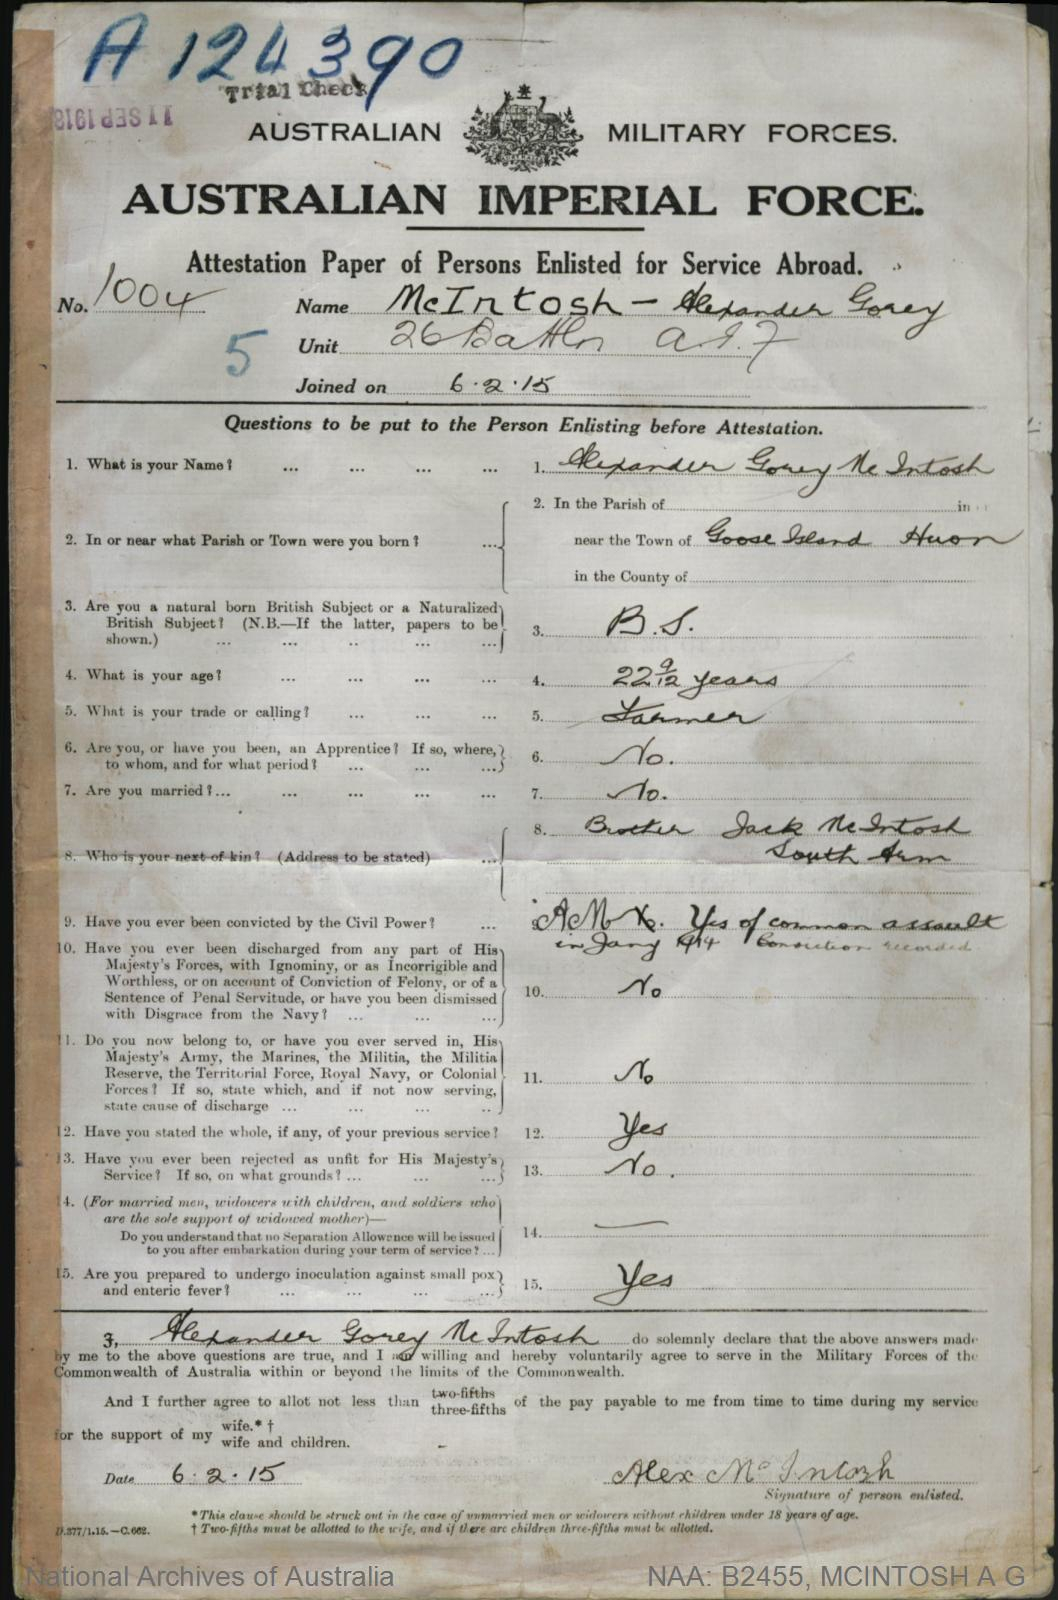 A 124390
Trial Check
11 SEP 1918
AUSTRALIAN MILITARY FORCES.
AUSTRALIAN IMPERIAL FORCE.
Attestation Paper of Persons Enlisted for Service Abroad.
No. 1004 Name McIntosh - Alexander Gorey
5 Unit 26 Battln A.I.F
Joined on 6.2.15
Questions to be put to the Person Enlisting before Attestation.
1. What is your Name? ... ... ... ... 1. Alexander Gorey McIntosh
2. In or near what Parish or Town were you born? ... 2. In the Parish of in
near the Town of Goose Island Huon
in the County of
3. Are you a natural born British Subject or a Naturalized
British Subject? (N.B.—If the latter, papers to be
shown.) ... ... .. ... ... 3. B.S.
4. What is your age? ... ... ... ... 4. 22 9/12 years
5. What is your trade or calling? ... ... ... 5. Farmer
6. Are you, or have you been, an Apprentice? If so, where,
to whom, and for what period? ... ... ... 6. No.
7. Are you married?... ... ... ... 7. No.
8. Who is your next of kin? (Address to be stated) ... 8. Brother Jack McIntosh
South Arm
9. Have you ever been convicted by the Civil Power? ... AM Yes of common assault
in Jany 1914 Conviction recorded
10. Have you ever been discharged from any part of His
Majesty's Forces, with Ignominy, or as Incorrigible and
Worthless, or on account of Conviction of Felony, or of a
Sentence of Penal Servitude, or have you been dismissed
with Disgrace from the Navy? ... ... ... 10. No
11. Do you now belong to, or have you ever served in, His
Majesty's Army, the Marines, the Militia, the Militia
Reserve, the Territorial Force, Royal Navy, or Colonial
Forces? If so, state which, and if not now serving,
state cause of discharge ... ... ... .. 11. No
12. Have you stated the whole, if any, of your previous service? 12. Yes
13. Have you ever been rejected as unfit for His Majesty's
Service? If so, on what grounds? ... ... ... 13. No.
14. (For married men, widowers with children, and soldiers who
are the sole support of widowed mother)—
Do you understand that no Separation Allowance will be issued
to you after embarkation during your term of service? ... 14. —
15. Are you prepared to undergo inoculation against small pox
and enteric fever? ... ... ... ... 15. Yes
I, Alexander Gorey McIntosh do solemnly declare that the above answers made
by me to the above questions are true, and I am willing and hereby voluntarily agree to serve in the Military Forces of the
Commonwealth of Australia within or beyond the limits of the Commonwealth.
And I further agree to allot not less than two-fifths three-fifths of the pay payable to me from time to time during my service
for the support of my wife.*† wife and children.
Date 6.2.15 Alex McIntosh
Signature of person enlisted.
*This clause should be struck out in the case of unmarried men or widowers without children under 18 years of age.
D.377/1.15.—C.662. † Two-fifths must be allotted to the wife, and if there are children three-fifths must be allotted.
National Archives of Australia NAA: B2455, MCINTOSH A G